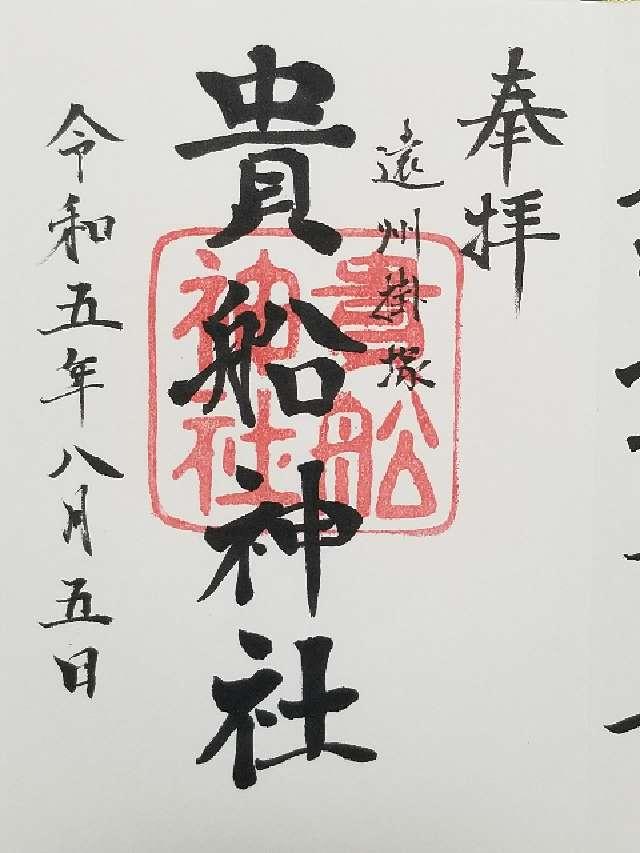 奉拝
遠州掛塚
貴船神社
貴船
神社
令和五年八月五日